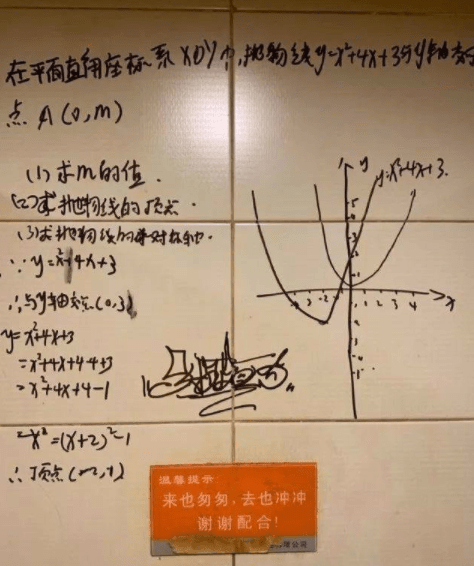 在平面直角坐标系XOY中,抛物线y=x²+4x+3与y轴交于
点A(0,m)
(1)求m的值.
(2)求抛物线的顶点.
(3)求抛物线的对称轴.
∵y=x²+4x+3
∴与y轴交点(0,3)
y=x²+4x+3
=x²+4x+4-4+3
=x²+4x+4-1
=(x+2)²-1
∴顶点(-2,-1)
y=x²+4x+3.
y
x
5
3
3 2
1 2 3 4
温馨提示
来也匆匆,去也冲冲
谢谢配合!